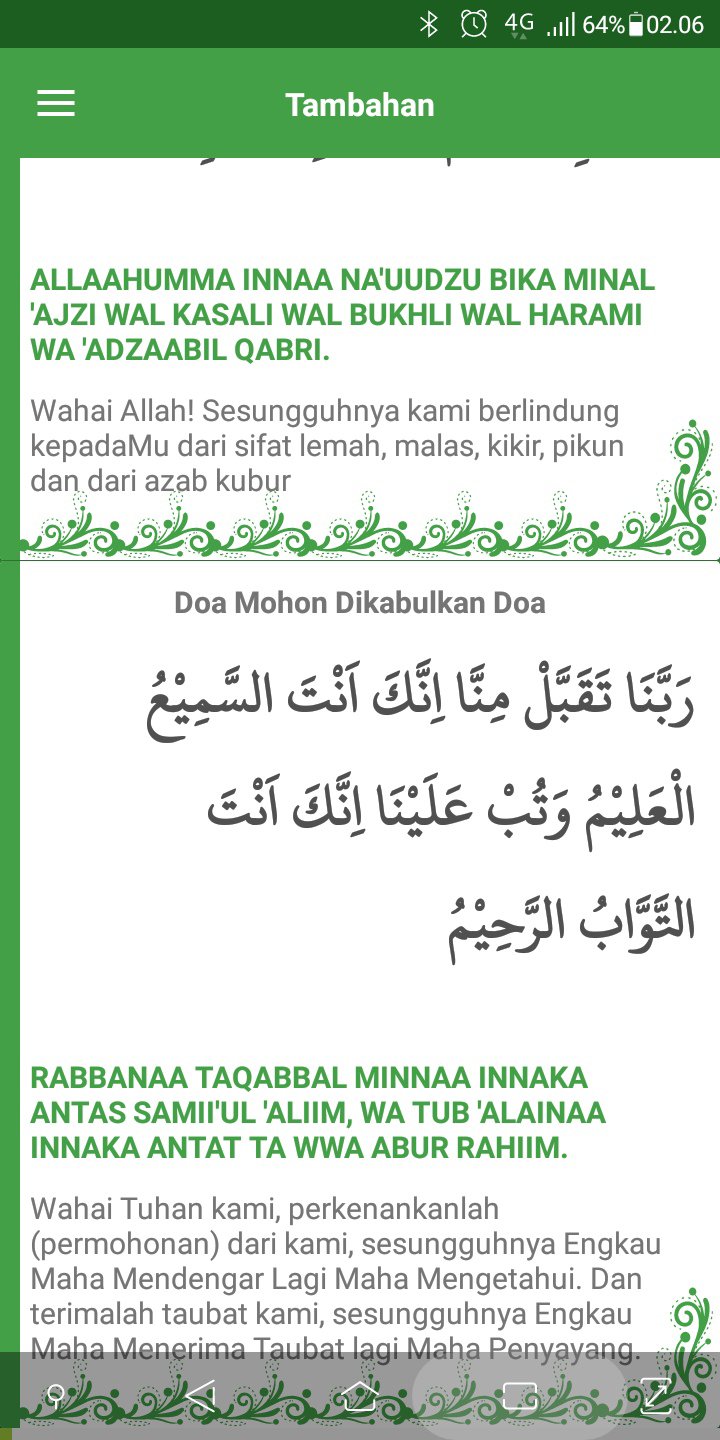 4G 64% 02.06
Tambahan
ALLAAHUMMA INNAA NA'UUDZU BIKA MINAL
'AJZI WAL KASALI WAL BUKHLI WAL HARAMI
WA 'ADZAABIL QABRI.
Wahai Allah! Sesungguhnya kami berlindung
kepadaMu dari sifat lemah, malas, kikir, pikun
dan dari azab kubur
Doa Mohon Dikabulkan Doa
رَبَّنَا تَقَبَّلْ مِنَّا اِنَّكَ اَنْتَ السَّمِيْعُ
الْعَلِيْمُ وَتُبْ عَلَيْنَا اِنَّكَ اَنْتَ
التَّوَّابُ الرَّحِيْمُ
RABBANAA TAQABBAL MINNAA INNAKA
ANTAS SAMII'UL 'ALIIM, WA TUB 'ALAINAA
INNAKA ANTAT TA WWA ABUR RAHIIM.
Wahai Tuhan kami, perkenankanlah
(permohonan) dari kami, sesungguhnya Engkau
Maha Mendengar Lagi Maha Mengetahui. Dan
terimalah taubat kami, sesungguhnya Engkau
Maha Menerima Taubat lagi Maha Penyayang.